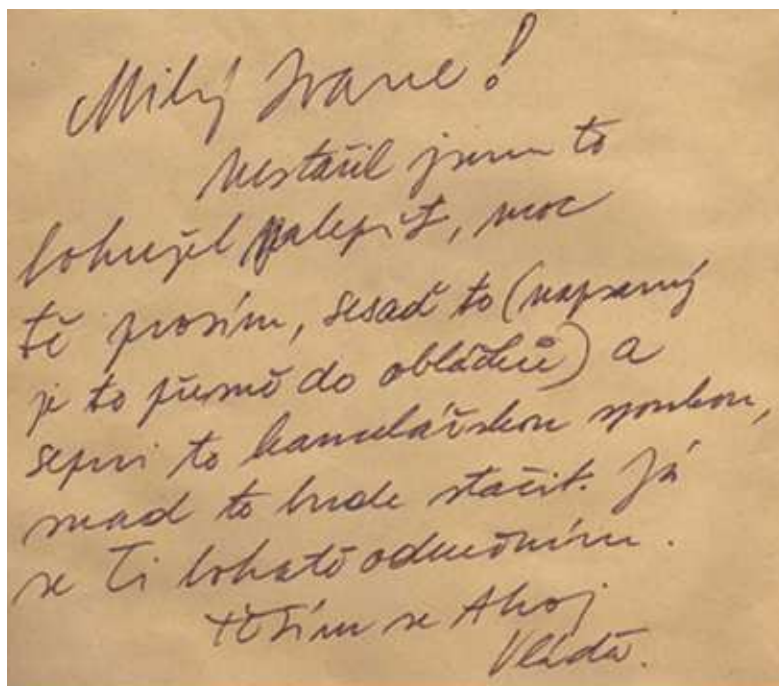 Milý Ivane!
Nestačil jsem to
bohužel nalepit, moc
tě prosím, sesaď to (napsaný
je to přesně do obláčků) a
sepni to kancelářskou sponkou,
snad to bude stačit. Já
se Ti bohatě odměním.
těším se Ahoj
Vláďa.